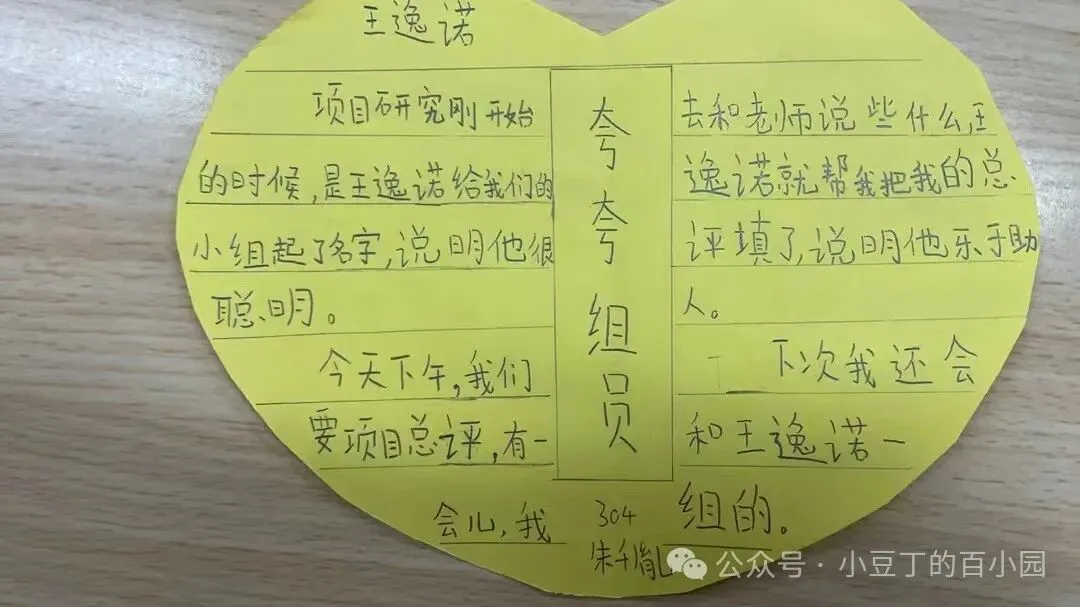 王逸诺
项目研究刚开始
的时候,是王逸诺给我们的
小组起了名字,说明他很
聪明。
今天下午,我们
要项目总评,有一
会儿,我
夸夸组员
304
朱千胤
去和老师说些什么,王
逸诺就帮我把我的总
评填了,说明他乐于助
人。
下次我还会
和王逸诺一
组的。
公众号·小豆丁的百小园